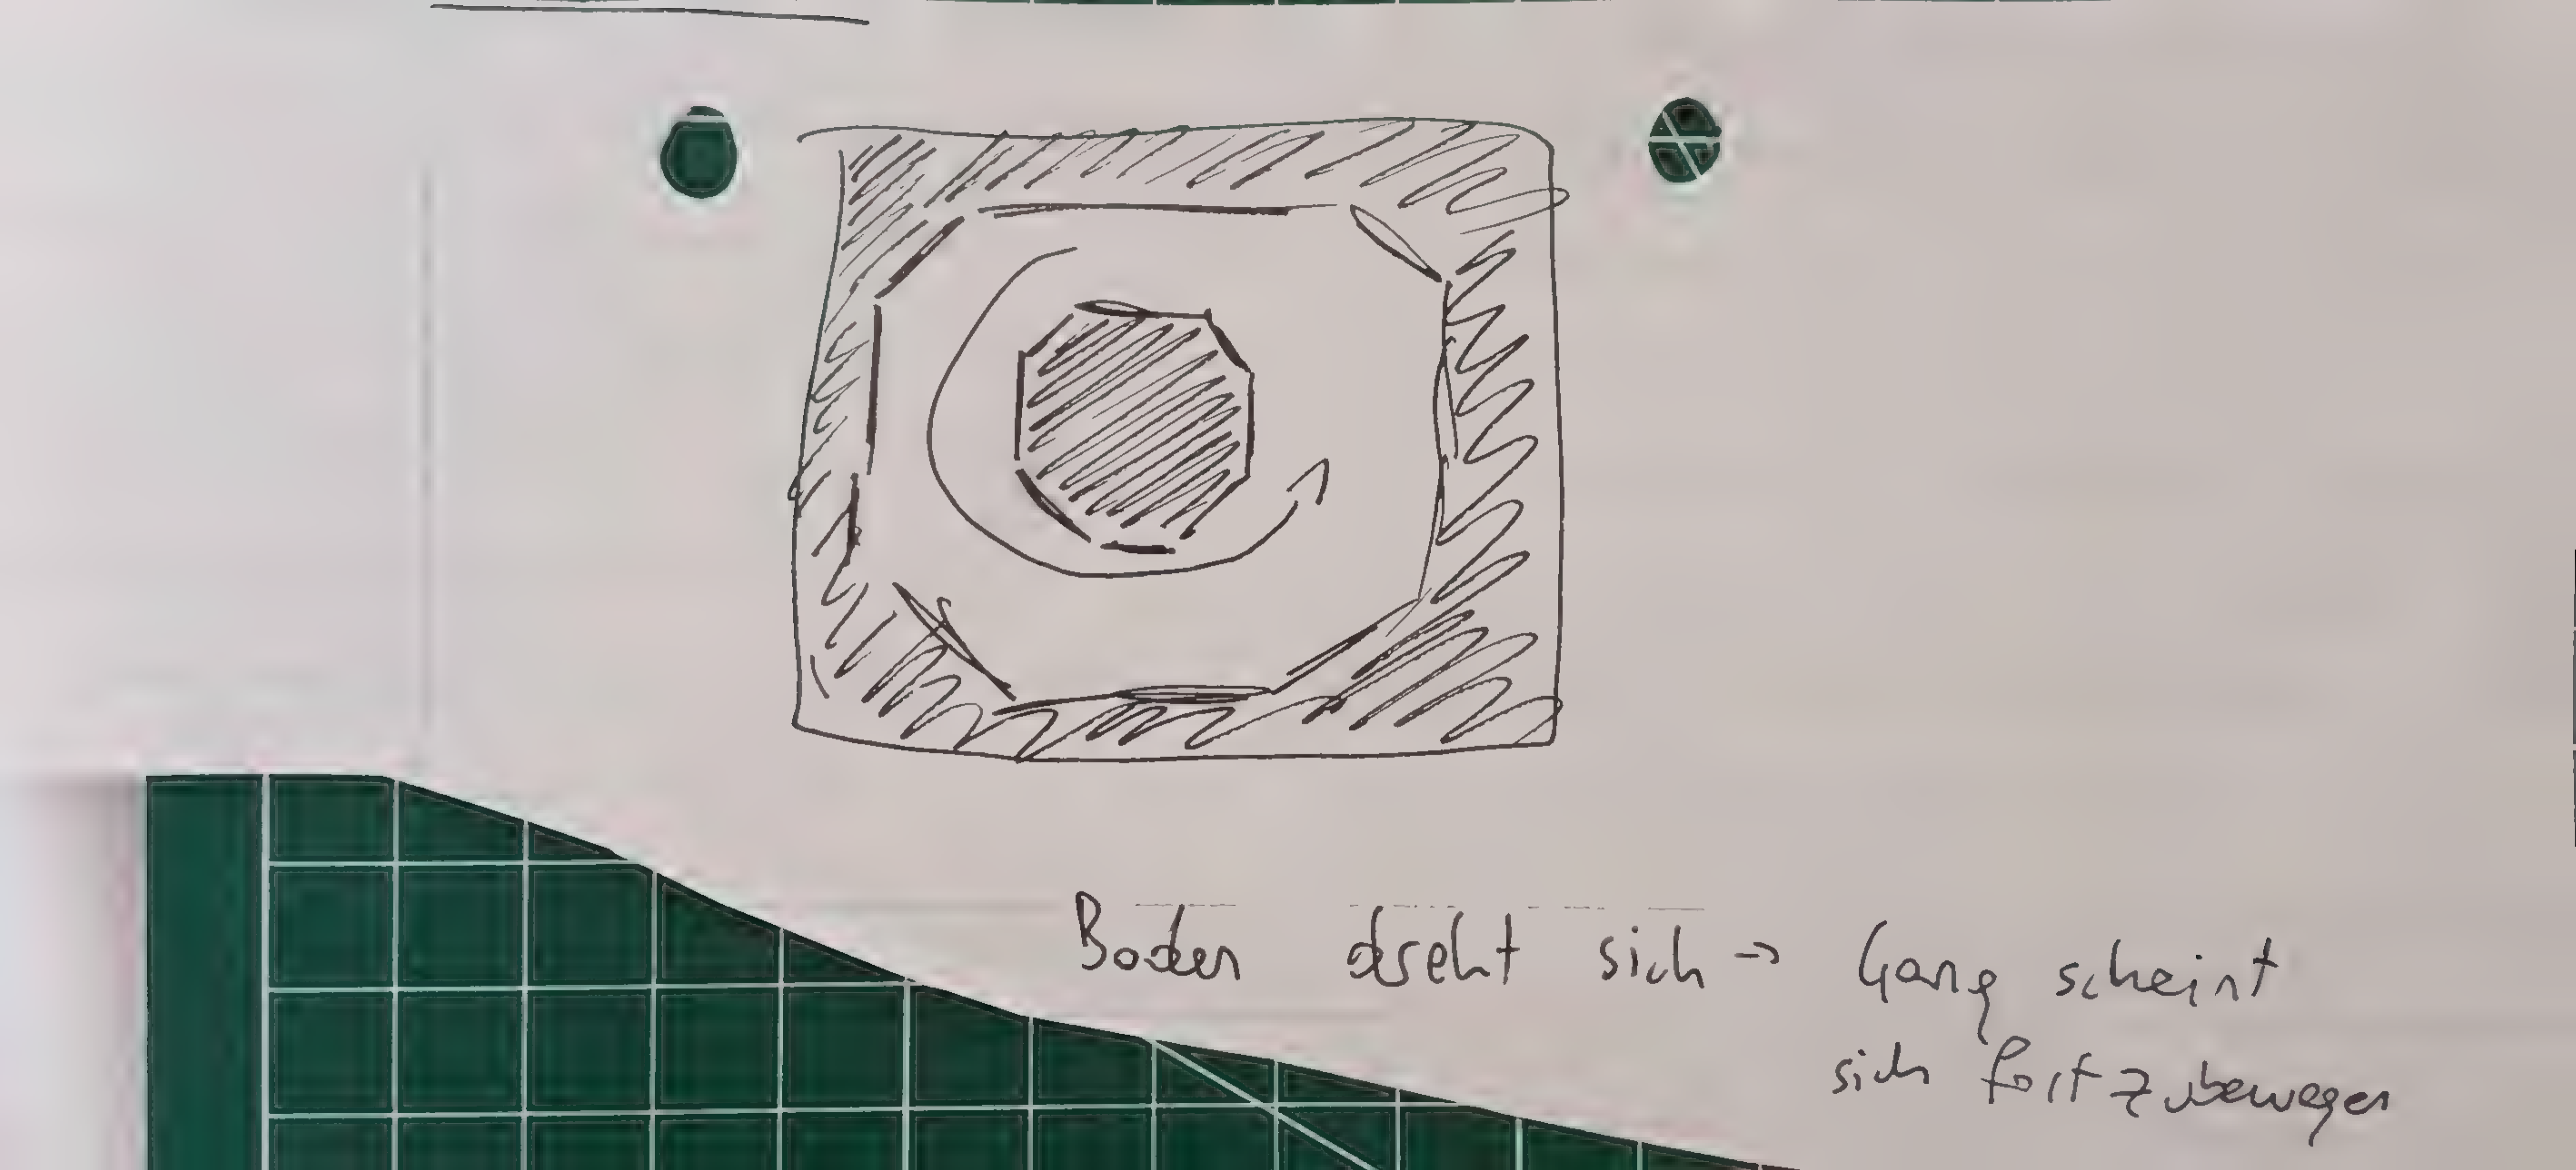 Boden dreht sich → Gang scheint
sich fortzubewegen